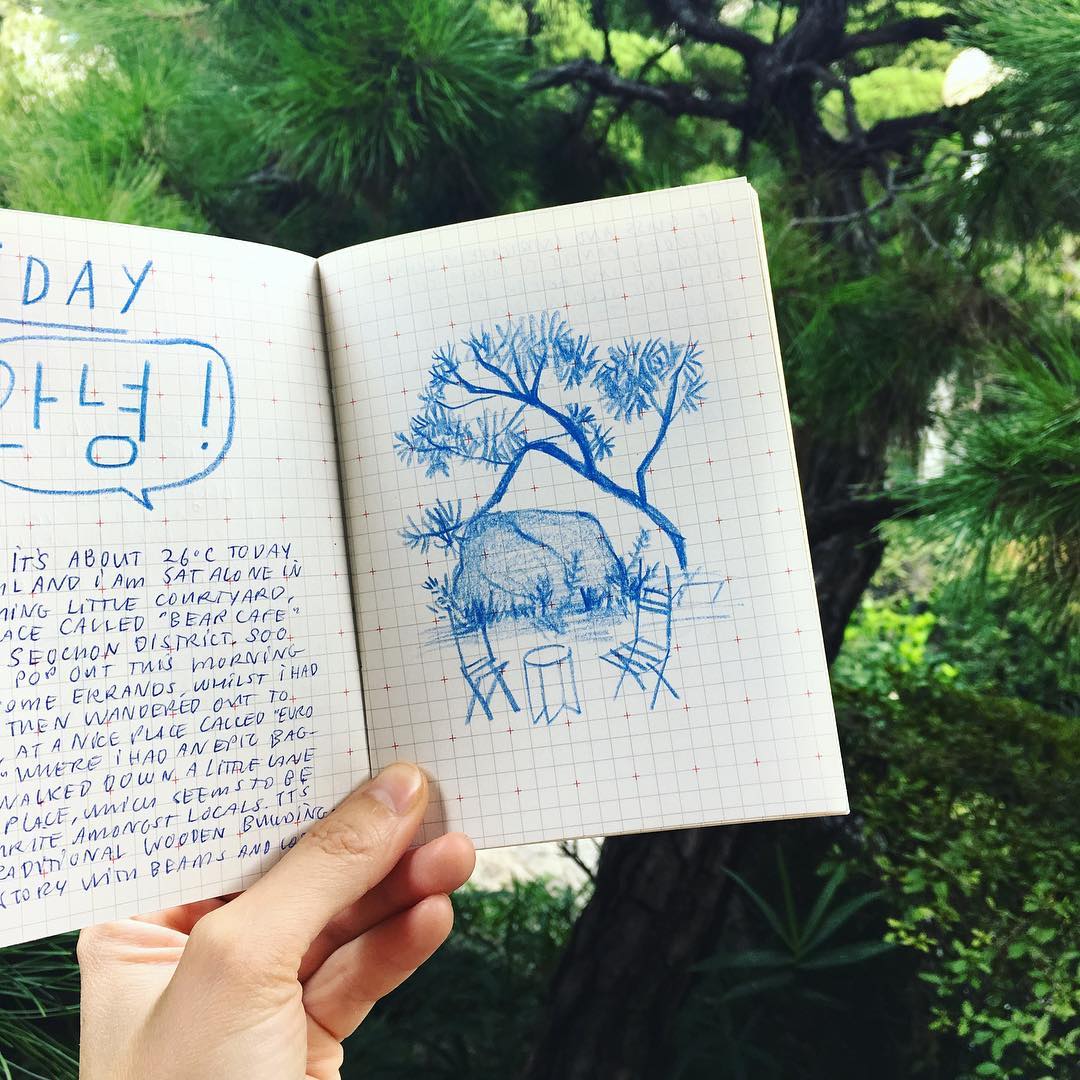 DAY
안녕!
IT'S ABOUT 26°C TODAY.
AND I AM SAT ALONE IN
MING LITTLE COURTYARD,
ACE CALLED "BEAR CAFE"
SEOCHON DISTRICT, SOO
POP OUT THIS MORNING
OME ERRANDS, WHILST I HAD
THEN WANDERED OUT TO
AT A NICE PLACE CALLED "EURO
" WHERE I HAD AN EPIC BAG-
WALKED DOWN A LITTLE LANE
PLACE, WHICH SEEMS TO BE
RITE AMONGST LOCALS. ITS
RADITIONAL WOODEN BUILDING
STORY WITH BEAMS AND